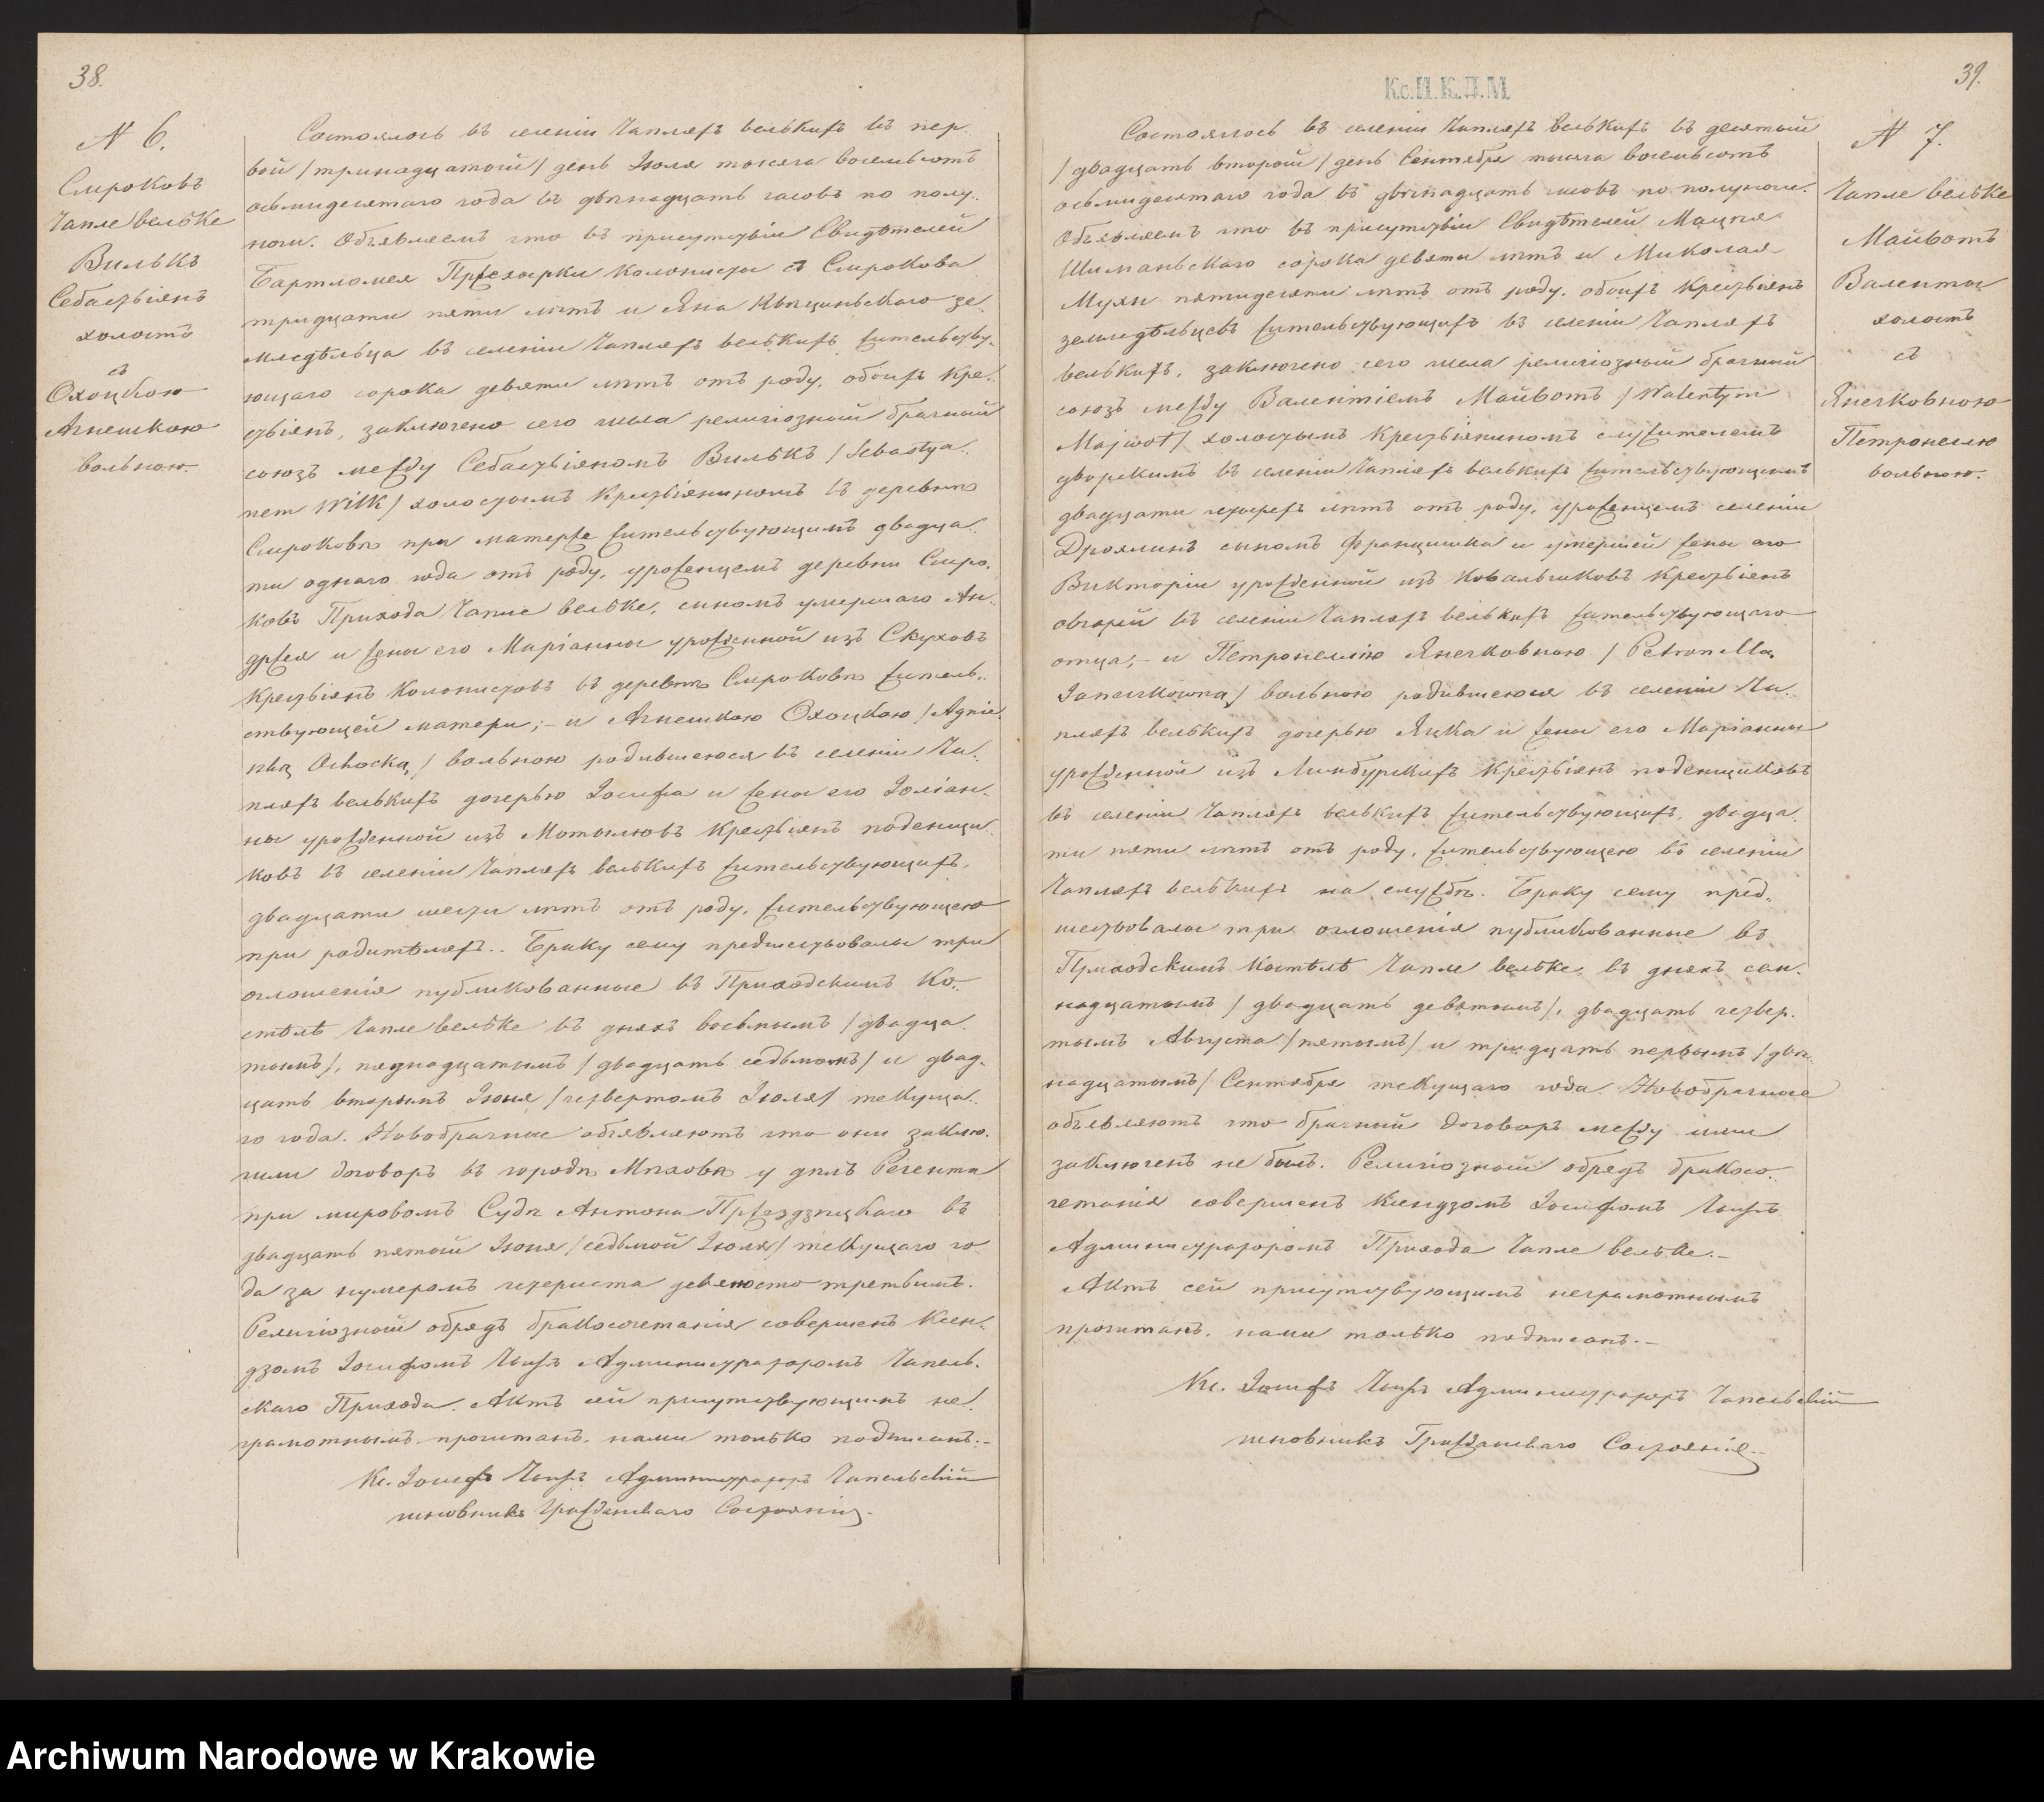 38.
N 6.
Сироковъ
Чапле велѣке
Вилькъ
Себастьiянъ
холостъ
съ
Охоцкою
Агнешкою
вольною.
Состоялось въ селенiи Чапляхъ велькихъ въ пер-
вой /тринадцатой/ день Iюля тысяча восемьсотъ
осьмидесятаго года въ двѣнадцать часовъ по полу-
ночи. Объявляемъ что въ присутствiи Свидѣтелей
Бартломея колонисты съ Сирокова
тридцати пяти лѣтъ и Яна Квѣциньскаго зе-
мледѣльца въ селенiи Чапляхъ велькихъ жительству-
ющаго сорока девяти лѣтъ отъ роду, обоихъ кре-
стьянъ, заключено сего числа религiозный брачный
союзъ между Себастьiяномъ Вилькъ /Sebastya-
nem Wilk/ холостымъ крестьяниномъ въ деревнѣ
Сироковѣ при матерже жительствующимъ двадца-
ти однаго года отъ роду, уроженцемъ деревни Сиро-
ковъ Прихода Чапле велѣке, сыномъ умершаго Ан-
држея и жены его Марiанны урожденной изъ Скуховъ
крестьянъ колонистовъ въ деревнѣ Сироковѣ житель-
ствующей матери; - и Агнешкою Охоцкою /Agnie-
szką Ochocką/ вольною родившеюся въ селенiи Ча-
пляхъ велькихъ дочерью Iосифа и жены его Юлiан-
ны урожденной изъ Мотылювъ крестьянъ поденщи-
ковъ въ селенiи Чапляхъ велькихъ жительствующихъ,
двадцати шести лѣтъ отъ роду, жительствующею
при родителяхъ.. Браку сему предшествовалы три
оглошенiя публикованные въ Приходскимъ Ко-
стѣлѣ Чапле велѣке въ дняхъ восьмымъ /двадца-
тымъ/, пятнадцатымъ /двадцать седьмымъ/ и двад-
цать вторымъ Iюня /четвертомъ Iюля/ текуща-
го года. Новобрачные объявляютъ что они заклю-
чили договоръ въ городѣ Мѣховѣ у дѣлъ Регента
при мировомъ Судѣ Антона въ
двадцать пятой Iюня /седьмой Iюля/ текущаго го-
да за нумеромъ четериста девяносто третьимъ.
Религiозной обрядъ бракосочетанiя совершенъ Ксен-
дзомъ Iосифомъ Чыжъ Администраторомъ Чапель-
скаго Прихода. Актъ сей присутствующимъ не-
грамотнымъ прочитанъ, нами только подписанъ:-
Кс. Iосифъ Чыжъ Администраторъ Чапельскiй
чиновникъ Гражданскаго Состоянiя.-
39.
Кс.И.К.Д.М
N 7.
Чапле велѣке
Майвотъ
Валенты
холостъ
съ
Янечковною
Петронелiю
вольною.
Состоялось въ селенiи Чапляхъ велькихъ въ десятый
/двадцать второй/ день Сентября тысяча восемьсотъ
осьмидесятаго года въ двѣнадцать часовъ по полуночи.
Объявляемъ что въ присутствiи Свидѣтелей Мацѣя
Шиманьскаго сорока девяти лѣтъ и Миколая
Мухи пятидесяти лѣтъ отъ роду, обоихъ крестьянъ
земледѣльцевъ жительствующихъ въ селенiи Чапляхъ
велькихъ, заключено сего числа религiозный брачный
союзъ между Валентiемъ Майвотъ /Walentym
Majwot/ холостымъ крестьяниномъ служителемъ
дворскимъ въ селенiи Чапляхъ велькихъ жительствующимъ
двадцати четырехъ лѣтъ отъ роду, уроженцемъ селенiи
Дроялинъ сыномъ Францишка и умершей жены его
Викторiи урожденной изъ Ковальчиковъ крестьянъ
овчарей въ селенiи Чапляхъ велькихъ жительствующаго
отца; - и Петронеллiю Янечковною /Petronellą
Janeczkowną/ вольною родившеюся въ селенiи Ча-
пляхъ велькихъ дочерью Яцка и жены его Марiанны
урожденной изъ Лимбурскихъ крестьянъ поденщиковъ
въ селенiи Чапляхъ велькихъ жительствующихъ, двадца-
ти пяти лѣтъ отъ роду, жительствующею въ селенiи
Чапляхъ велькихъ на службѣ. Браку сему пред-
шествовалы три оглошенiя публикованные въ
Приходскимъ Костѣлѣ Чапле велѣке, въ дняхъ сем-
надцатымъ /двадцать девятымъ/, двадцать четвер-
тымъ Августа /пятымъ/ и тридцать первымъ /двѣ-
надцатымъ/ Сентября текущаго года. Новобрачные
объявляютъ что брачный договоръ между ими
заключенъ не былъ. Религiозной обрядъ бракосо-
четанiя совершенъ Ксендзомъ Iосифомъ Чыжъ
Администраторомъ Прихода Чапле велѣке.-
Актъ сей присутствующимъ неграмотнымъ
прочитанъ, нами только подписанъ.-
Кс. Iосифъ Чыжъ Администраторъ Чапельскiй
чиновникъ Гражданскаго Состоянiя.-
Archiwum Narodowe w Krakowie